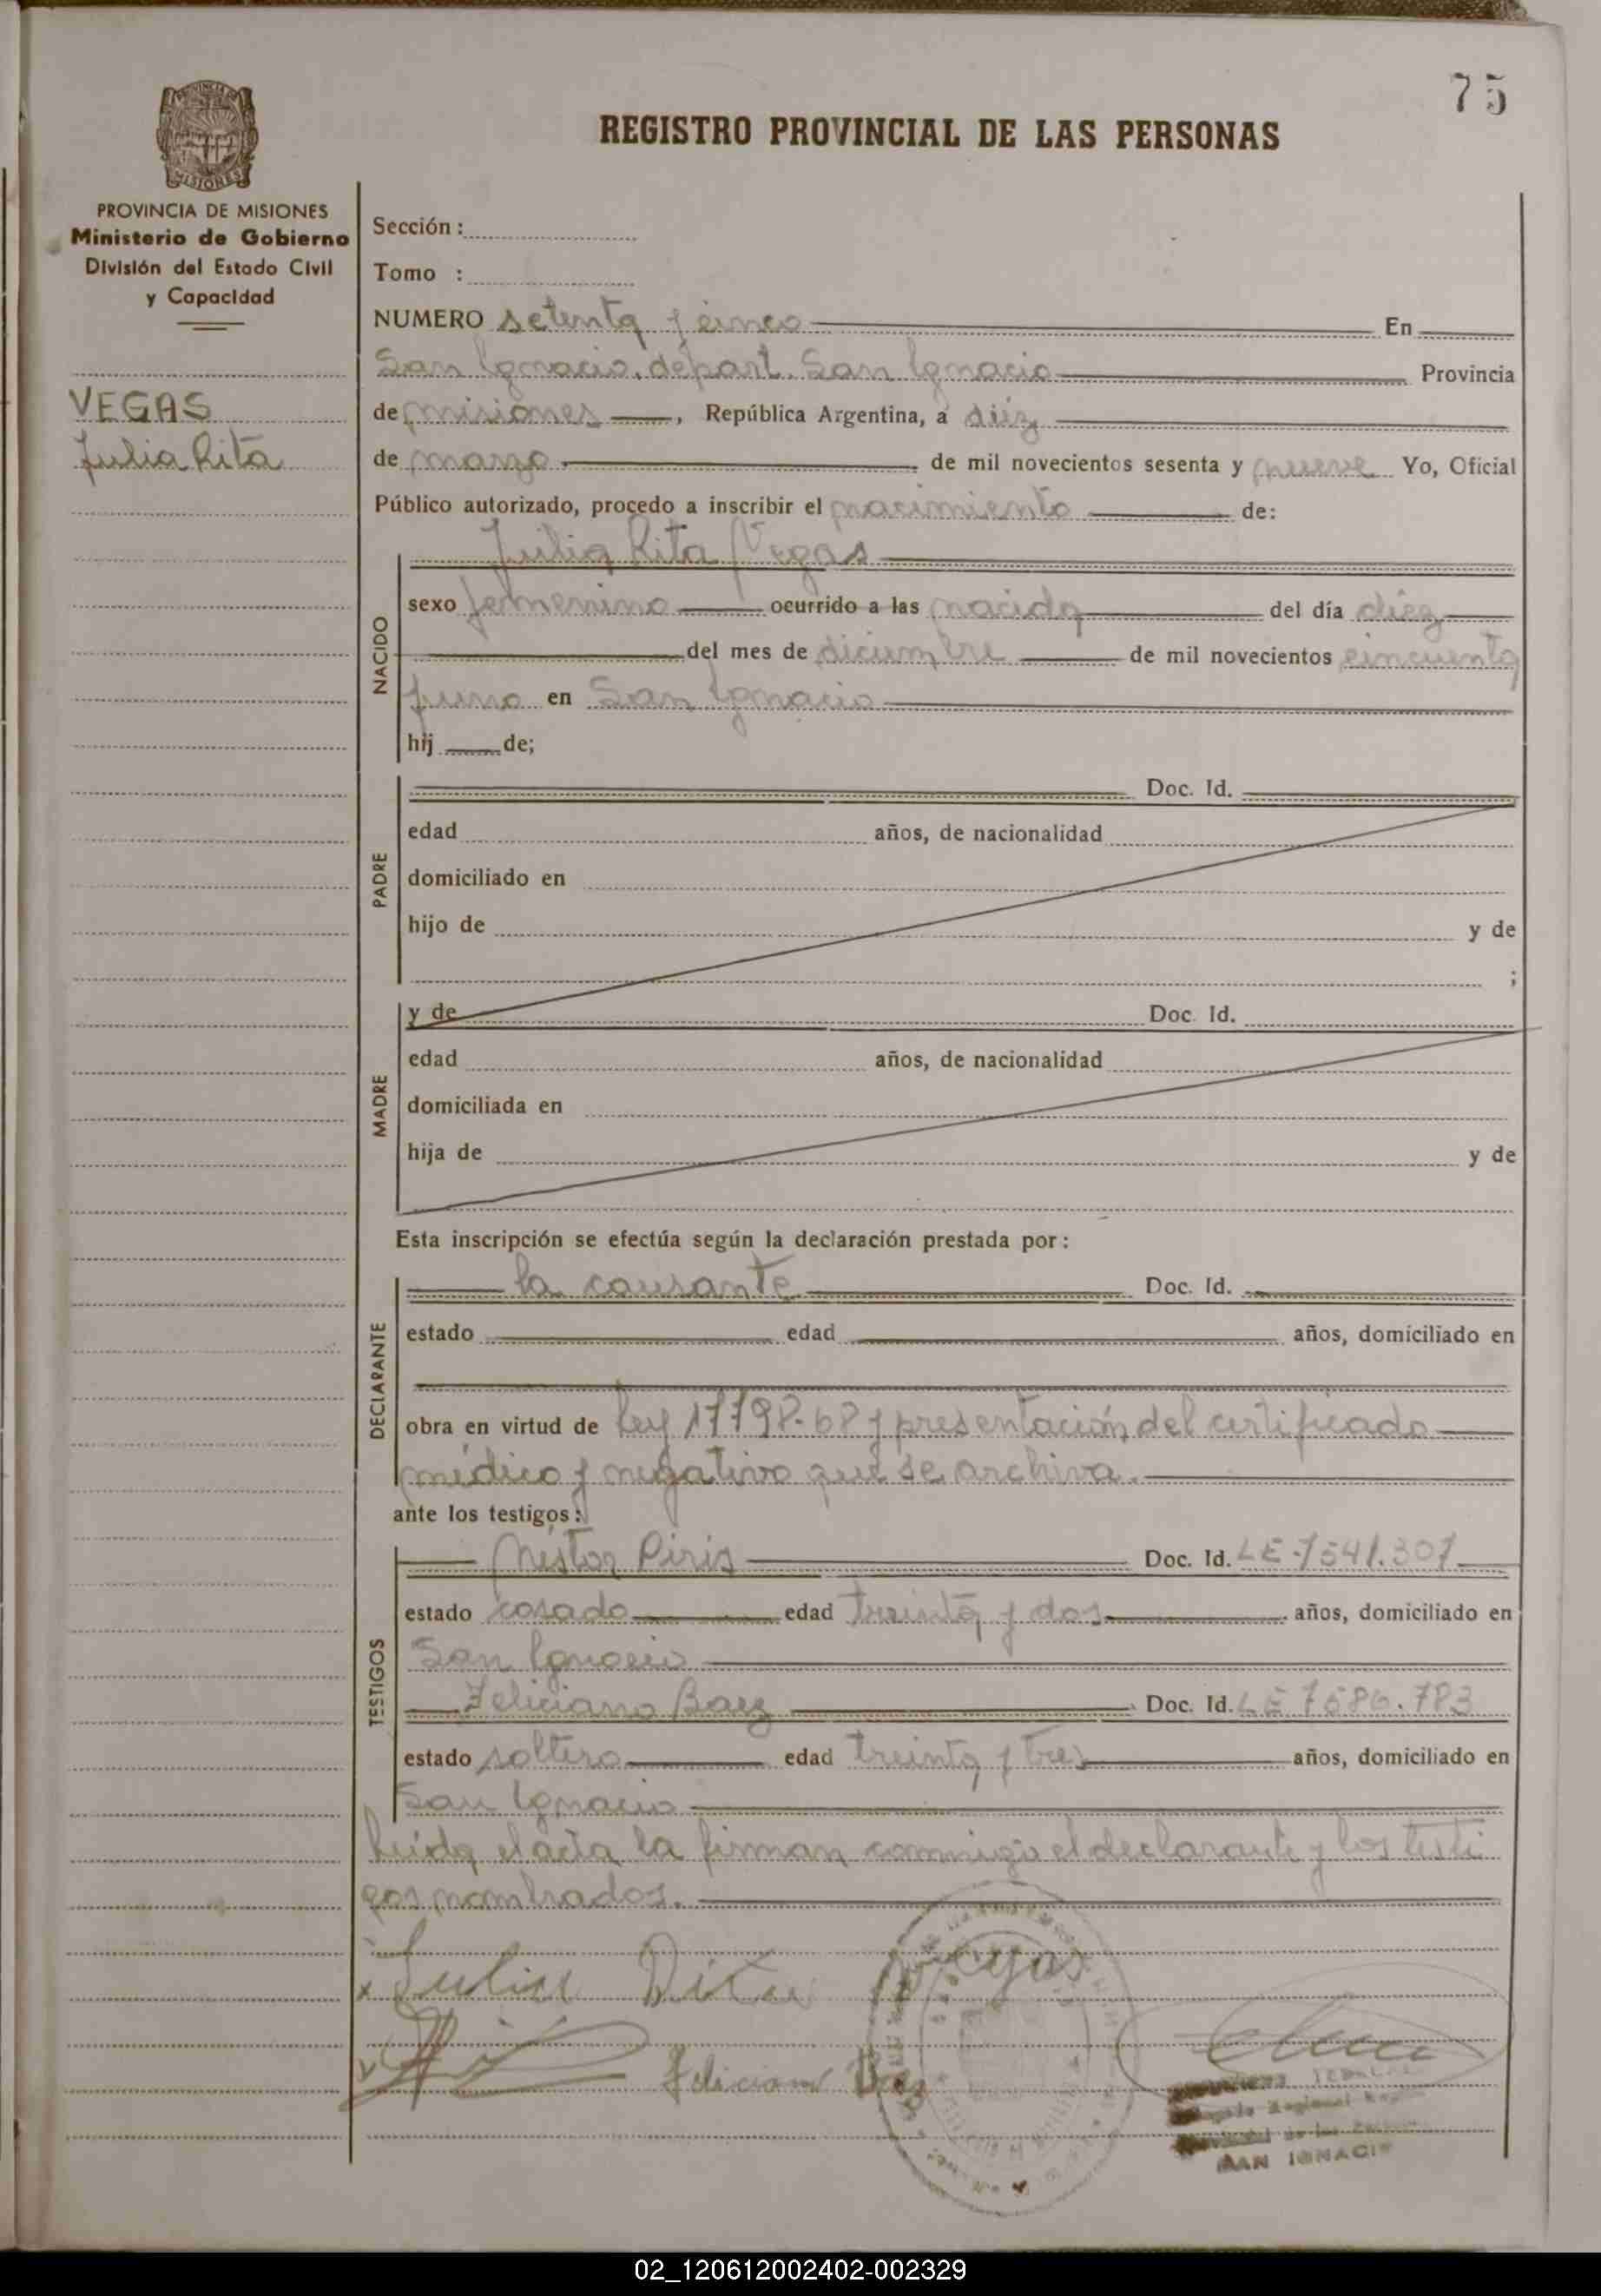 75
REGISTRO PROVINCIAL DE LAS PERSONAS
PROVINCIA DE MISIONES
Ministerio de Gobierno
División del Estado Civil
y Capacidad
VEGAS
Julia Rita
Sección :
Tomo :
NUMERO setenta y cinco En
San Ignacio, depart. San Ignacio Provincia
de misiones, República Argentina, a diez
de marzo de mil novecientos sesenta y nueve Yo, Oficial
Público autorizado, procedo a inscribir el nacimiento de:
Julia Rita Vegas
NACIDO
sexo femenino ocurrido a las nacida del día diez
del mes de diciembre de mil novecientos cincuenta
y uno en San Ignacio
hij de;
PADRE
Doc. Id.
edad años, de nacionalidad
domiciliado en
hijo de y de
;
MADRE
y de Doc. Id.
edad años, de nacionalidad
domiciliada en
hija de y de
Esta inscripción se efectúa según la declaración prestada por :
DECLARANTE
la causante Doc. Id.
estado edad años, domiciliado en
obra en virtud de Ley 17798-68 y presentación del certificado
médico y negativo que se archiva.
ante los testigos :
TESTIGOS
Nestor Piris Doc. Id. LE-7541.307
estado casado edad treinta y dos años, domiciliado en
San Ignacio
Feliciano Baez Doc. Id. LE 7586.783
estado soltero edad treinta y tres años, domiciliado en
San Ignacio
Leída el acta la firman conmigo el declarante y los testi
gos nombrados.
Julia Rita Vegas
Felician Baez
SAN IGNACIO
02_120612002402-002329